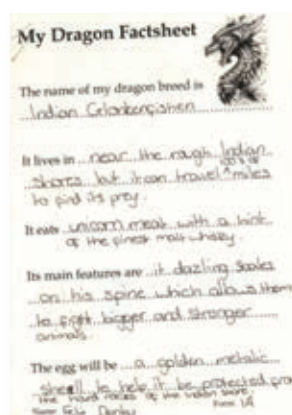 My Dragon Factsheet
The name of my dragon breed is
Indian
It lives in near the rough Indian
100's of
shores but it can travel ^ miles
to find its prey.
It eats unicorn meat with a hint
of the finest malt whisky.
Its main features are it dazling scales
on his spine which allows them
to fight bigger and stronger
animals.
The egg will be a golden metalic
shell to help it be protected from
the hard rocks of the Indian shore.
Name Form